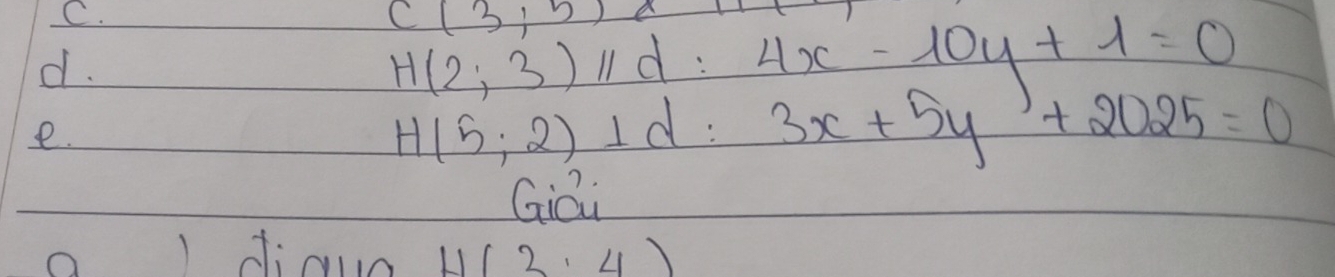 c. C(3;5)
d. H(2;3) // d: 4x - 10y + 1 = 0
e. H(5;2) ⊥ d: 3x + 5y + 2025 = 0
Giải
a đi qua H(3;4)